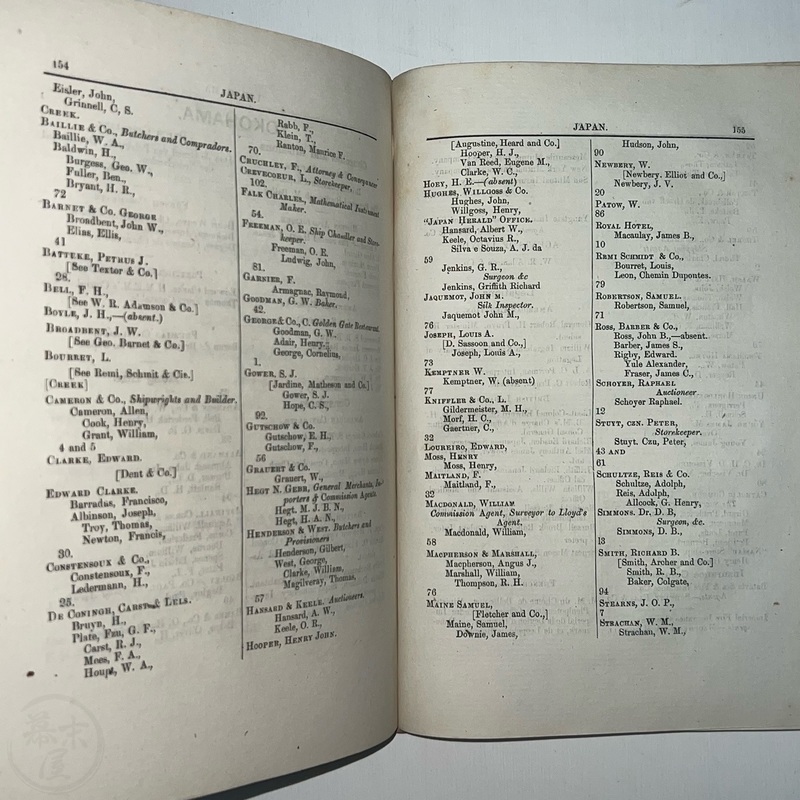 154
JAPAN.
Eisler, John,
Grinnell, C, S.
CREEK.
BAILLIE & Co., Butchers and Compradors.
Baillie, W. A.,
Baldwin, H.,
Burgess, Geo. W.,
Fuller, Ben.,
Bryant, H. R.,
72
BARNET & Co. GEORGE
Broadbent, John W.,
Elias, Ellis,
41
BATTEKE, PETRUS J.
[See Textor & Co.]
28.
BELL, F. H.,
[See W. R. Adamson & Co.]
BOYLE, J. H.,—(absent.)
BROADBENT, J. W.
[See Geo. Barnet & Co.]
BOURRET, L.
[See Remi, Schmit & Cie.]
[CREEK]
CAMERON & Co., Shipwrights and Builder.
Cameron, Allen,
Cook, Henry,
Grant, William,
4 and 5
CLARKE, EDWARD.
[Dent & Co.]
EDWARD CLARKE.
Barradas, Francisco,
Albinson, Joseph,
Troy, Thomas,
Newton, Francis,
30.
CONSTENSOUX & Co.,
Constensoux, F.,
Ledermann, H.,
25.
DE CONINGH, CARST & LELS.
Bruyn, H.,
Plate, Fzn, G. F.,
Carst, R. J.,
Mees, F. A.,
Houpt, W. A.,
Rabb, F.,
Klein, T.,
Ranton, Maurice F.
70.
CRUCHLEY, F., Attorney & Conveyancer
CREVECOEUR, L., Storekeeper.
102.
FALK CHARLES, Mathematical Instrument
Maker.
54.
FREEMAN, O. E. Ship Chandler and Store-
keeper.
Freeman, O. E.
Ludwig, John,
81.
GARNIER, F.
Armagnac, Raymond,
GOODMAN, G. W. Baker.
42.
GEORGE & Co., C. Golden Gate Restaurant.
Goodman, G. W.
Adair, Henry,
George, Cornelius,
1.
GOWER, S. J.
[Jardine, Matheson and Co.]
Gower, S. J.
Hope, C. S.,
92.
GUTSCHOW & Co.
Gutschow, E. H.,
Gutschow, F.,
56
GRAUERT & Co.
Grauert, W.,
HEGT N. GEBR, General Merchants, Im-
porters & Commission Agents.
Hegt. M. J. B. N.,
Hegt, H. A. N.,
HENDERSON & WEST. Butchers and
Provisioners
Henderson, Gilbert,
West, George,
Clarke, William,
Magilveray, Thomas,
57
HANSARD & KEELE. Auctioneers.
Hansard, A. W.,
Keele, O. R.,
HOOPER, HENRY JOHN.
JAPAN.
155
[Augustine, Heard and Co.]
Hooper, H. J.,
Van Reed, Eugene M.,
Clarke, W. C.,
HOEY, H. E.—(absent)
HUGHES, WILLGOSS & Co.
Hughes, John,
Willgoss, Henry,
"JAPAN HERALD" OFFICK.
Hansard, Albert W.,
Keele, Octavius R.,
Silva e Souza, A. J. da
59
Jenkins, G. R.,
Surgeon &c
Jenkins, Griffith Richard
JAQUEMOT, JOHN M.
Silk Inspector.
Jaquemot John M.,
76
JOSEPH, LOUIS A.
[D. Sassoon and Co.,]
Joseph, Louis A.,
73
KEMPTNER W.
Kemptner, W. (absent)
77
KNIFFLER & Co., L.
Gildermeister, M. H.,
Morf, H. C.,
Gaertner, C.,
32
LOUREIRO, EDWARD,
MOSS, HENRY
Moss, Henry,
MAITLAND, F.
Maitland, F.,
32
MACDONALD, WILLIAM
Commission Agent, Surveyor to Lloyd's
Agent,
Macdonald, William,
58
MACPHERSON & MARSHALL,
Macpherson, Angus J.,
Marshall, William,
Thompson, R. H.
76
MAINE SAMUEL,
[Fletcher and Co.,]
Maine, Samuel,
Downie, James,
Hudson, John,
90
NEWBERY, W.
[Newbery. Elliot and Co.,]
Newbery, J. V.
20
PATOW, W.
86
ROYAL HOTEL,
Macaulay, James B.,
10
REMI SCHMIDT & Co.,
Bourret, Louis,
Leon, Chemin Dupontes.
79
ROBERTSON, SAMUEL.
Robertson, Samuel,
71
ROSS, BARBER & Co.,
Ross, John B.,—absent.
Barber, James S.,
Rigby, Edward.
Yule Alexander,
Fraser, James C.,
SCHOYER, RAPHAEL
Auctioneer
Schoyer Raphael.
12
STUYT, CZN. PETER,
Storekeeper.
Stuyt. Czu, Peter,
43 AND
61
SCHULTZE, REIS & Co.
Schultze, Adolph,
Reis, Adolph,
Allcock, G. Henry,
SIMMONS. Dr. D, B,
Surgeon, &c.
Simmons, D. B.,
13
SMITH, RICHARD B.
[Smith, Archer and Co.]
Smith, R. B.,
Baker, Colgate,
94
STEARNS, J. O. P.,
7
STRACHAN, W. M.,
Strachan, W. M.,
幕末屋